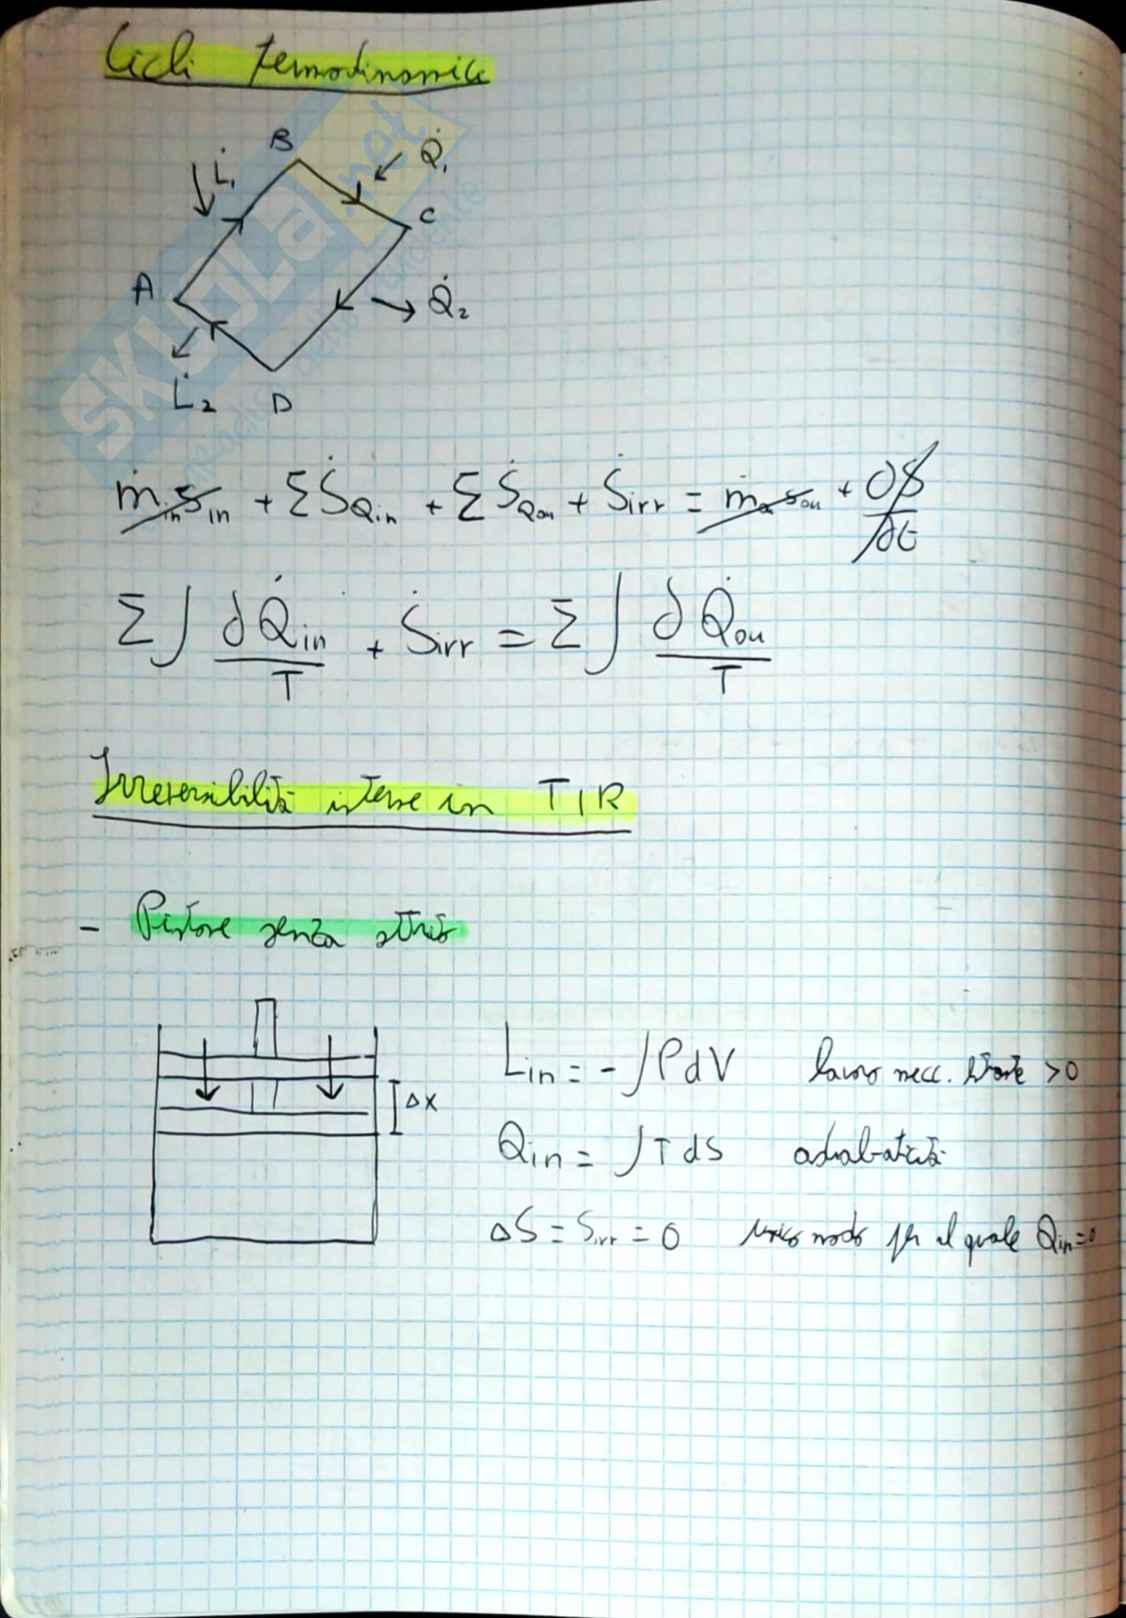 Cicli termodinamici
B
L̇₁
Q̇₁
C
A
Q̇₂
L̇₂ D
SKUOLA.net
ṁᵢₙsᵢₙ + ΣṠQᵢₙ + ΣṠQₒᵤ + Ṡᵢᵣᵣ = ṁₒᵤsₒᵤ + ∂S/∂t
Σ∫ ∂Q̇ᵢₙ/T + Ṡᵢᵣᵣ = Σ∫ ∂Q̇ₒᵤ/T
Irreversibilità interne in TIR
- Pistone senza attrito
Lᵢₙ = -∫PdV lavoro mecc. >0
ΔX
Qᵢₙ = ∫TdS adiabaticità
ΔS = Sᵢᵣᵣ = 0 unico modo per il quale Qᵢₙ=0